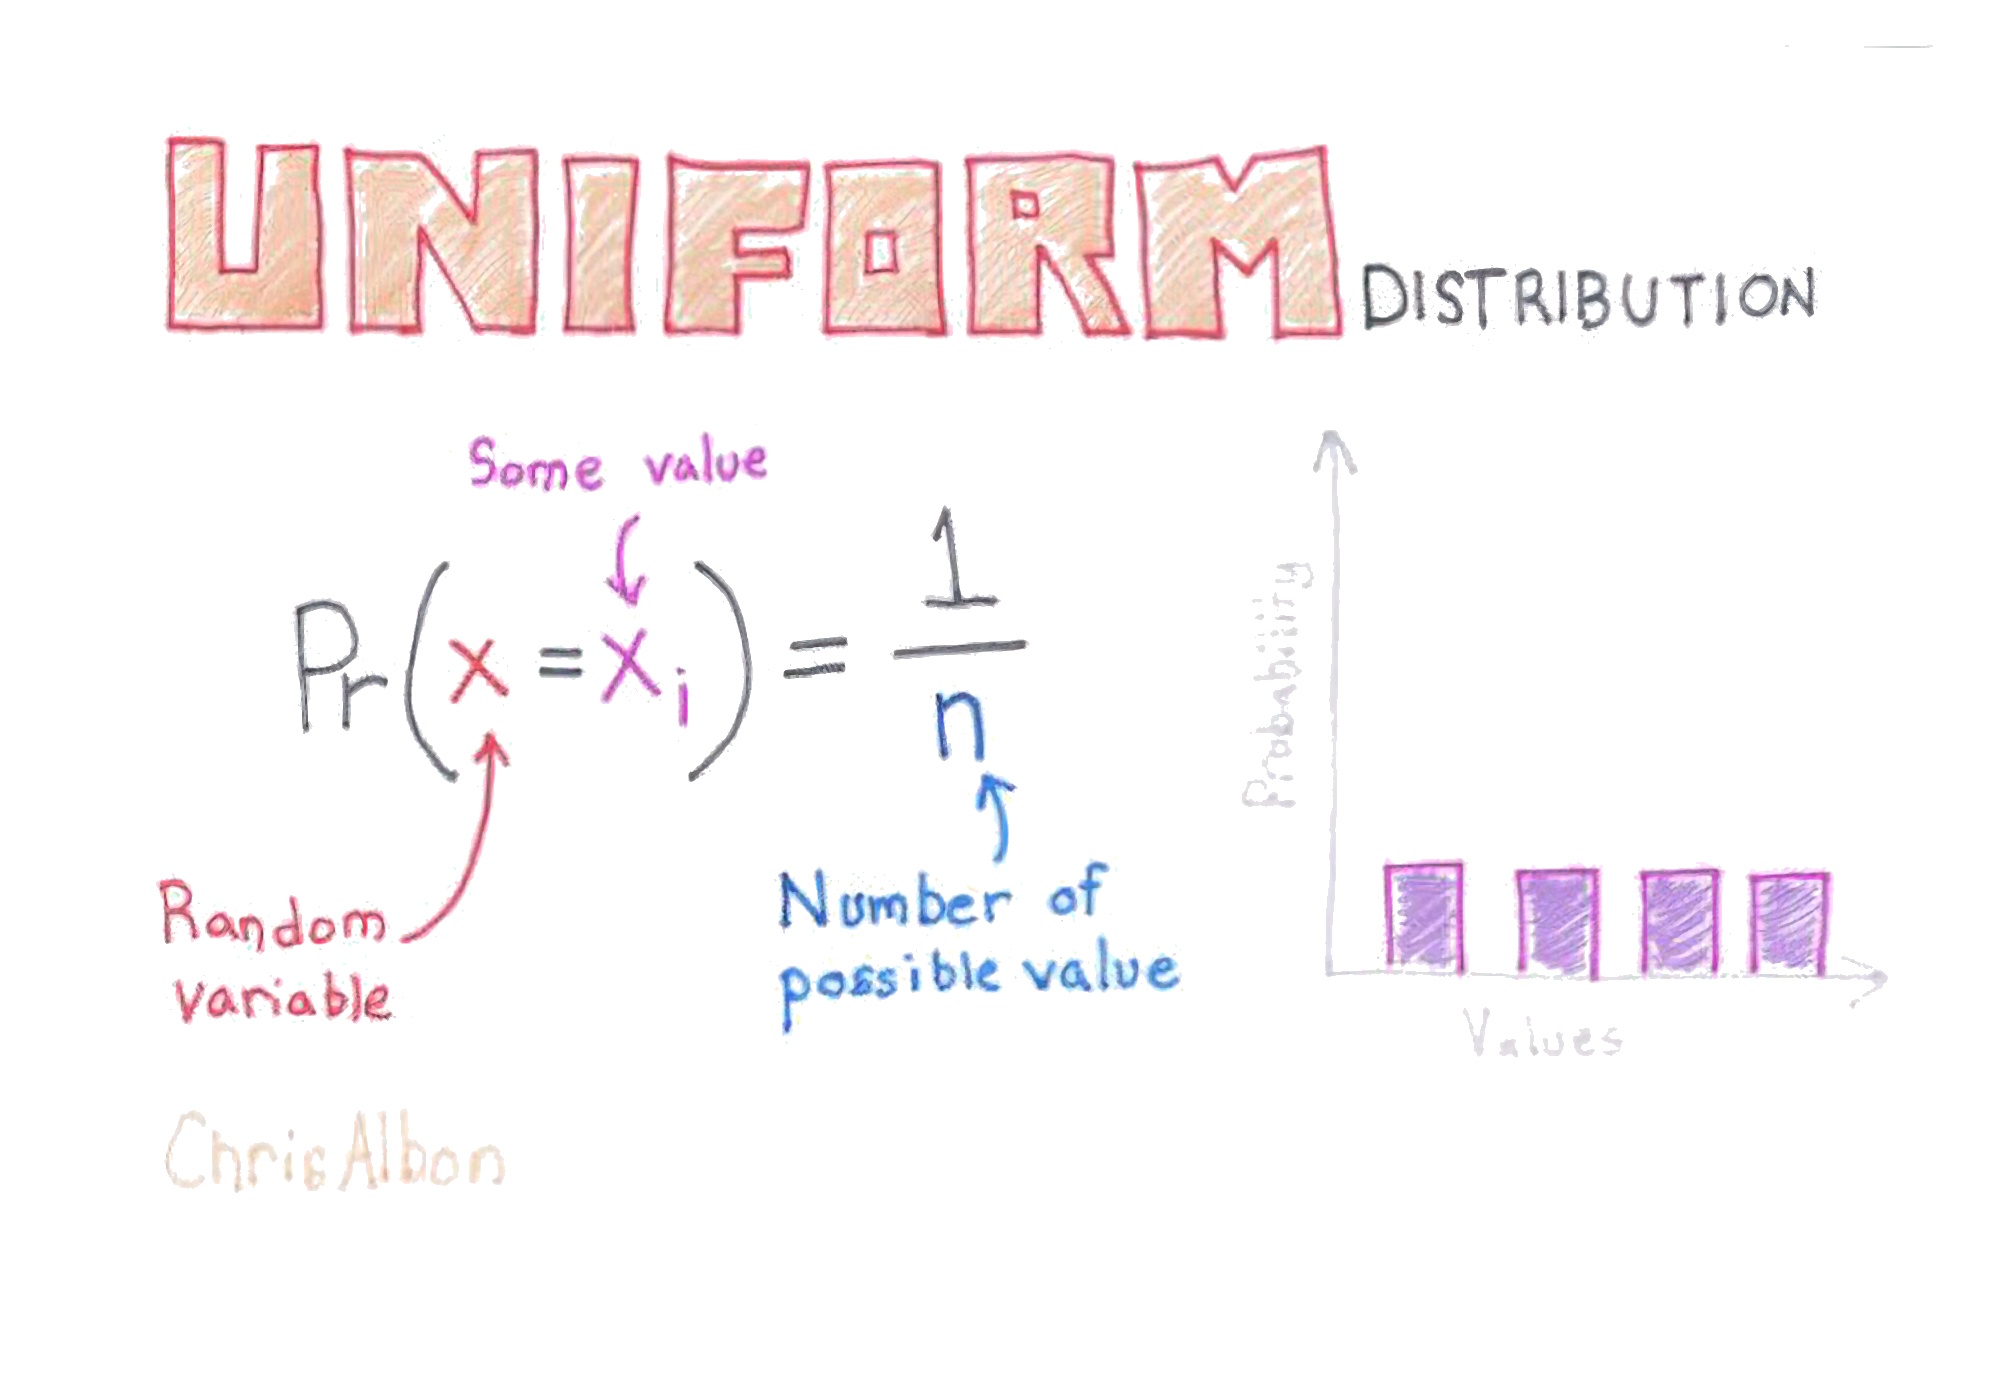 UNIFORM DISTRIBUTION
Some value
Pr(x = xi) = 1/n
Random
variable
Number of
possible value
Probability
Values
Chris Albon